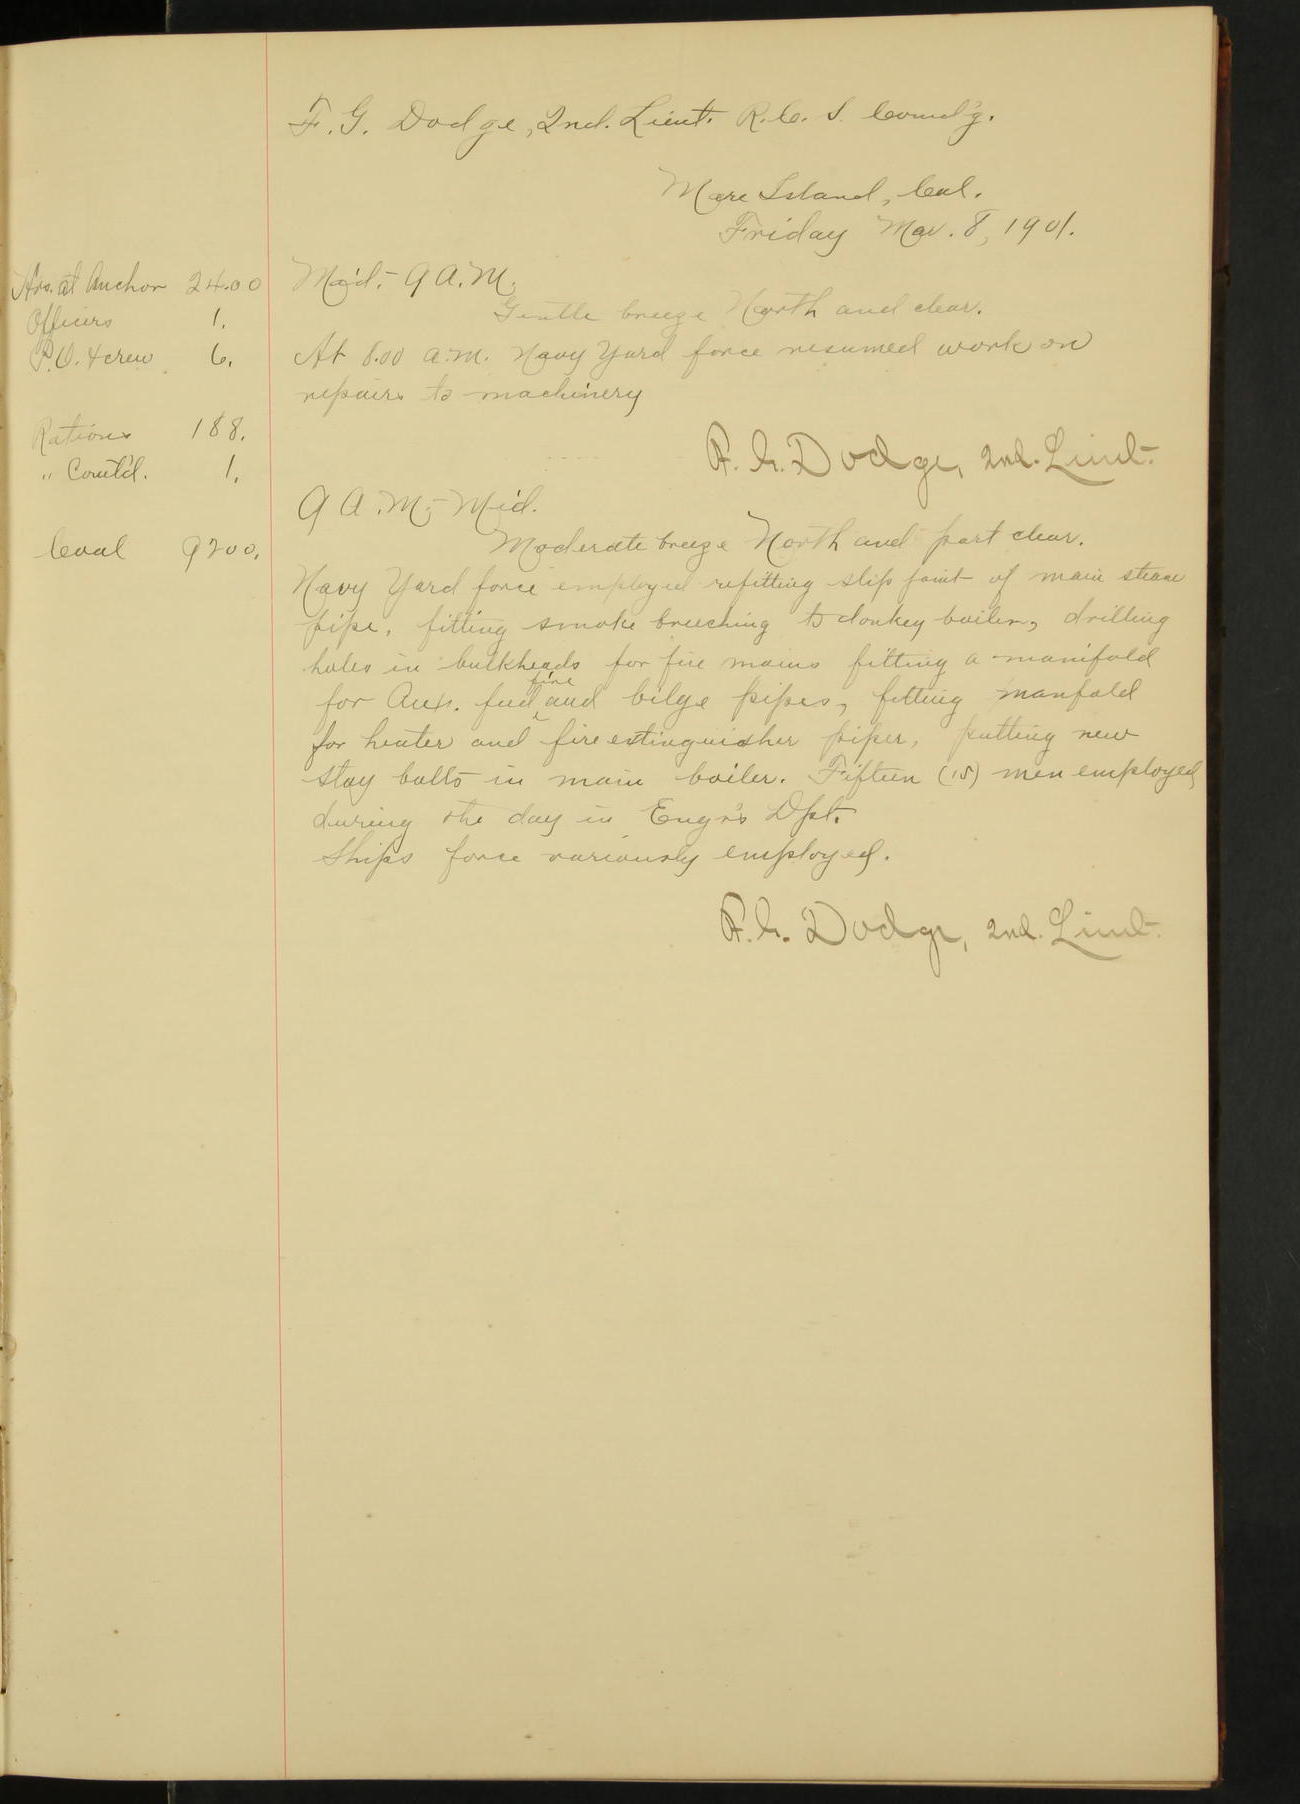 F. G. Dodge, 2nd. Lieut. R. C. S. Comd'g.
Mare Island, Cal.
Friday Mar. 8, 1901.
Hrs. at Anchor 24.00
Officers 1.
P.O. & crew 6.
Rations 188.
" Com't'd. 1.
Coal 9200.
Mid. - 9 A.M.
Gentle breeze North and clear.
At 8.00 a.m. Navy Yard force resumed work on
repairs to machinery
F. G. Dodge, 2nd. Lieut.
9 A.M. - Mid.
Moderate breeze North and part clear.
Navy Yard force employed refitting slip joint of main steam
pipe, fitting smoke breeching to donkey boiler, drilling
holes in bulkheads for fire mains fitting a manifold
for Aux. feed fire and bilge pipes, fitting manfold
for heater and fire extinguisher pipes, putting new
stay bolts in main boiler. Fifteen (15) men employed
during the day in Engr's Dpt.
Ships force variously employed.
F. G. Dodge, 2nd. Lieut.